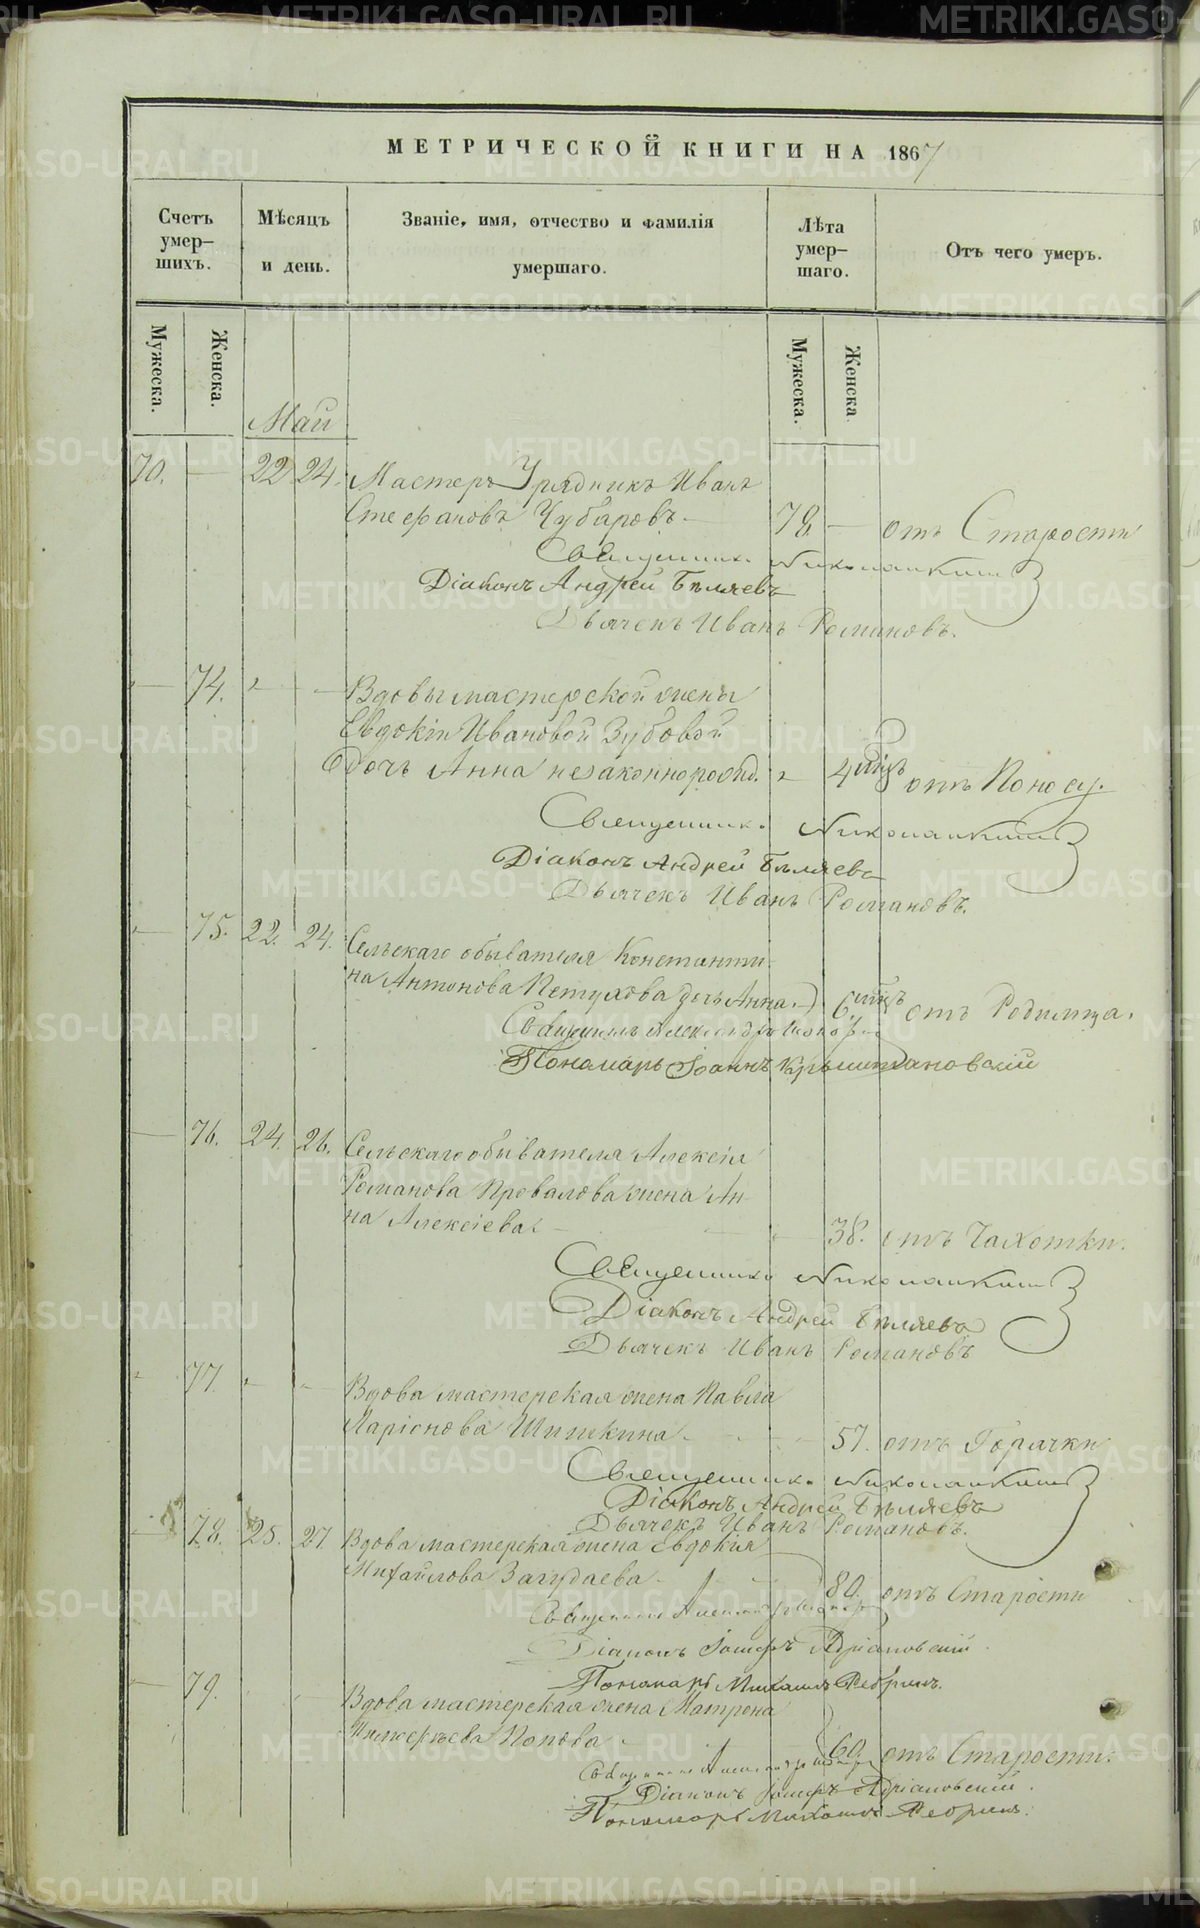 МЕТРИЧЕСКОЙ КНИГИ НА 1867
Счетъ умер- шихъ.
Мѣсяцъ и день.
Званіе, имя, отчество и фамилія умершаго.
Лѣта умер- шаго.
Отъ чего умеръ.
Мужеска.
Женска.
Мужеска.
Женска
Май
70. — 22 24. Мастеръ Урядникъ Иванъ
Стефановъ Чубаровъ — 78 — отъ Старости
Священникъ
Діаконъ Андрей Бѣляевъ
Дьячекъ Иванъ Романовъ.
— 74. Вдовы мастерской жены
Евдокіи Ивановой Зубовой
дочь Анна незаконнорожд. 4 мцъ отъ Поносу.
Священникъ
Діаконъ Андрей Бѣляевъ
Дьячекъ Иванъ Романовъ.
— 75. 22. 24. Сельскаго обывателя Константи-
на Антонова Петухова дочь Анна. 6 мцъ отъ Родимца.
Священникъ Александръ
Пономарь Іоаннъ
— 76. 24. 26. Сельскаго обывателя Алексія
Романова Провалова жена Ан-
на Алексіева — 38. отъ Чахотки.
Священникъ
Діаконъ Андрей Бѣляевъ
Дьячекъ Иванъ Романовъ
77. Вдова мастерская жена Павла
Ларіонова Шишкина — 57. отъ Горячки
Священникъ
Діаконъ Андрей Бѣляевъ
Дьячекъ Иванъ Романовъ.
— 78. 25. 27. Вдова мастерская жена Евдокія
Михайлова Загудаева — 80. отъ Старости
Священникъ Александръ
Діаконъ Іосифъ Адріановскій.
Пономарь Михаилъ Ребринъ.
— 79. Вдова мастерская жена Матрона
Тимофѣева Попова — 60. отъ Старости.
Священникъ Александръ
Діаконъ Іосифъ Адріановскій.
Пономарь Михаилъ Ребринъ.
METRIKI.GASO-URAL.RU